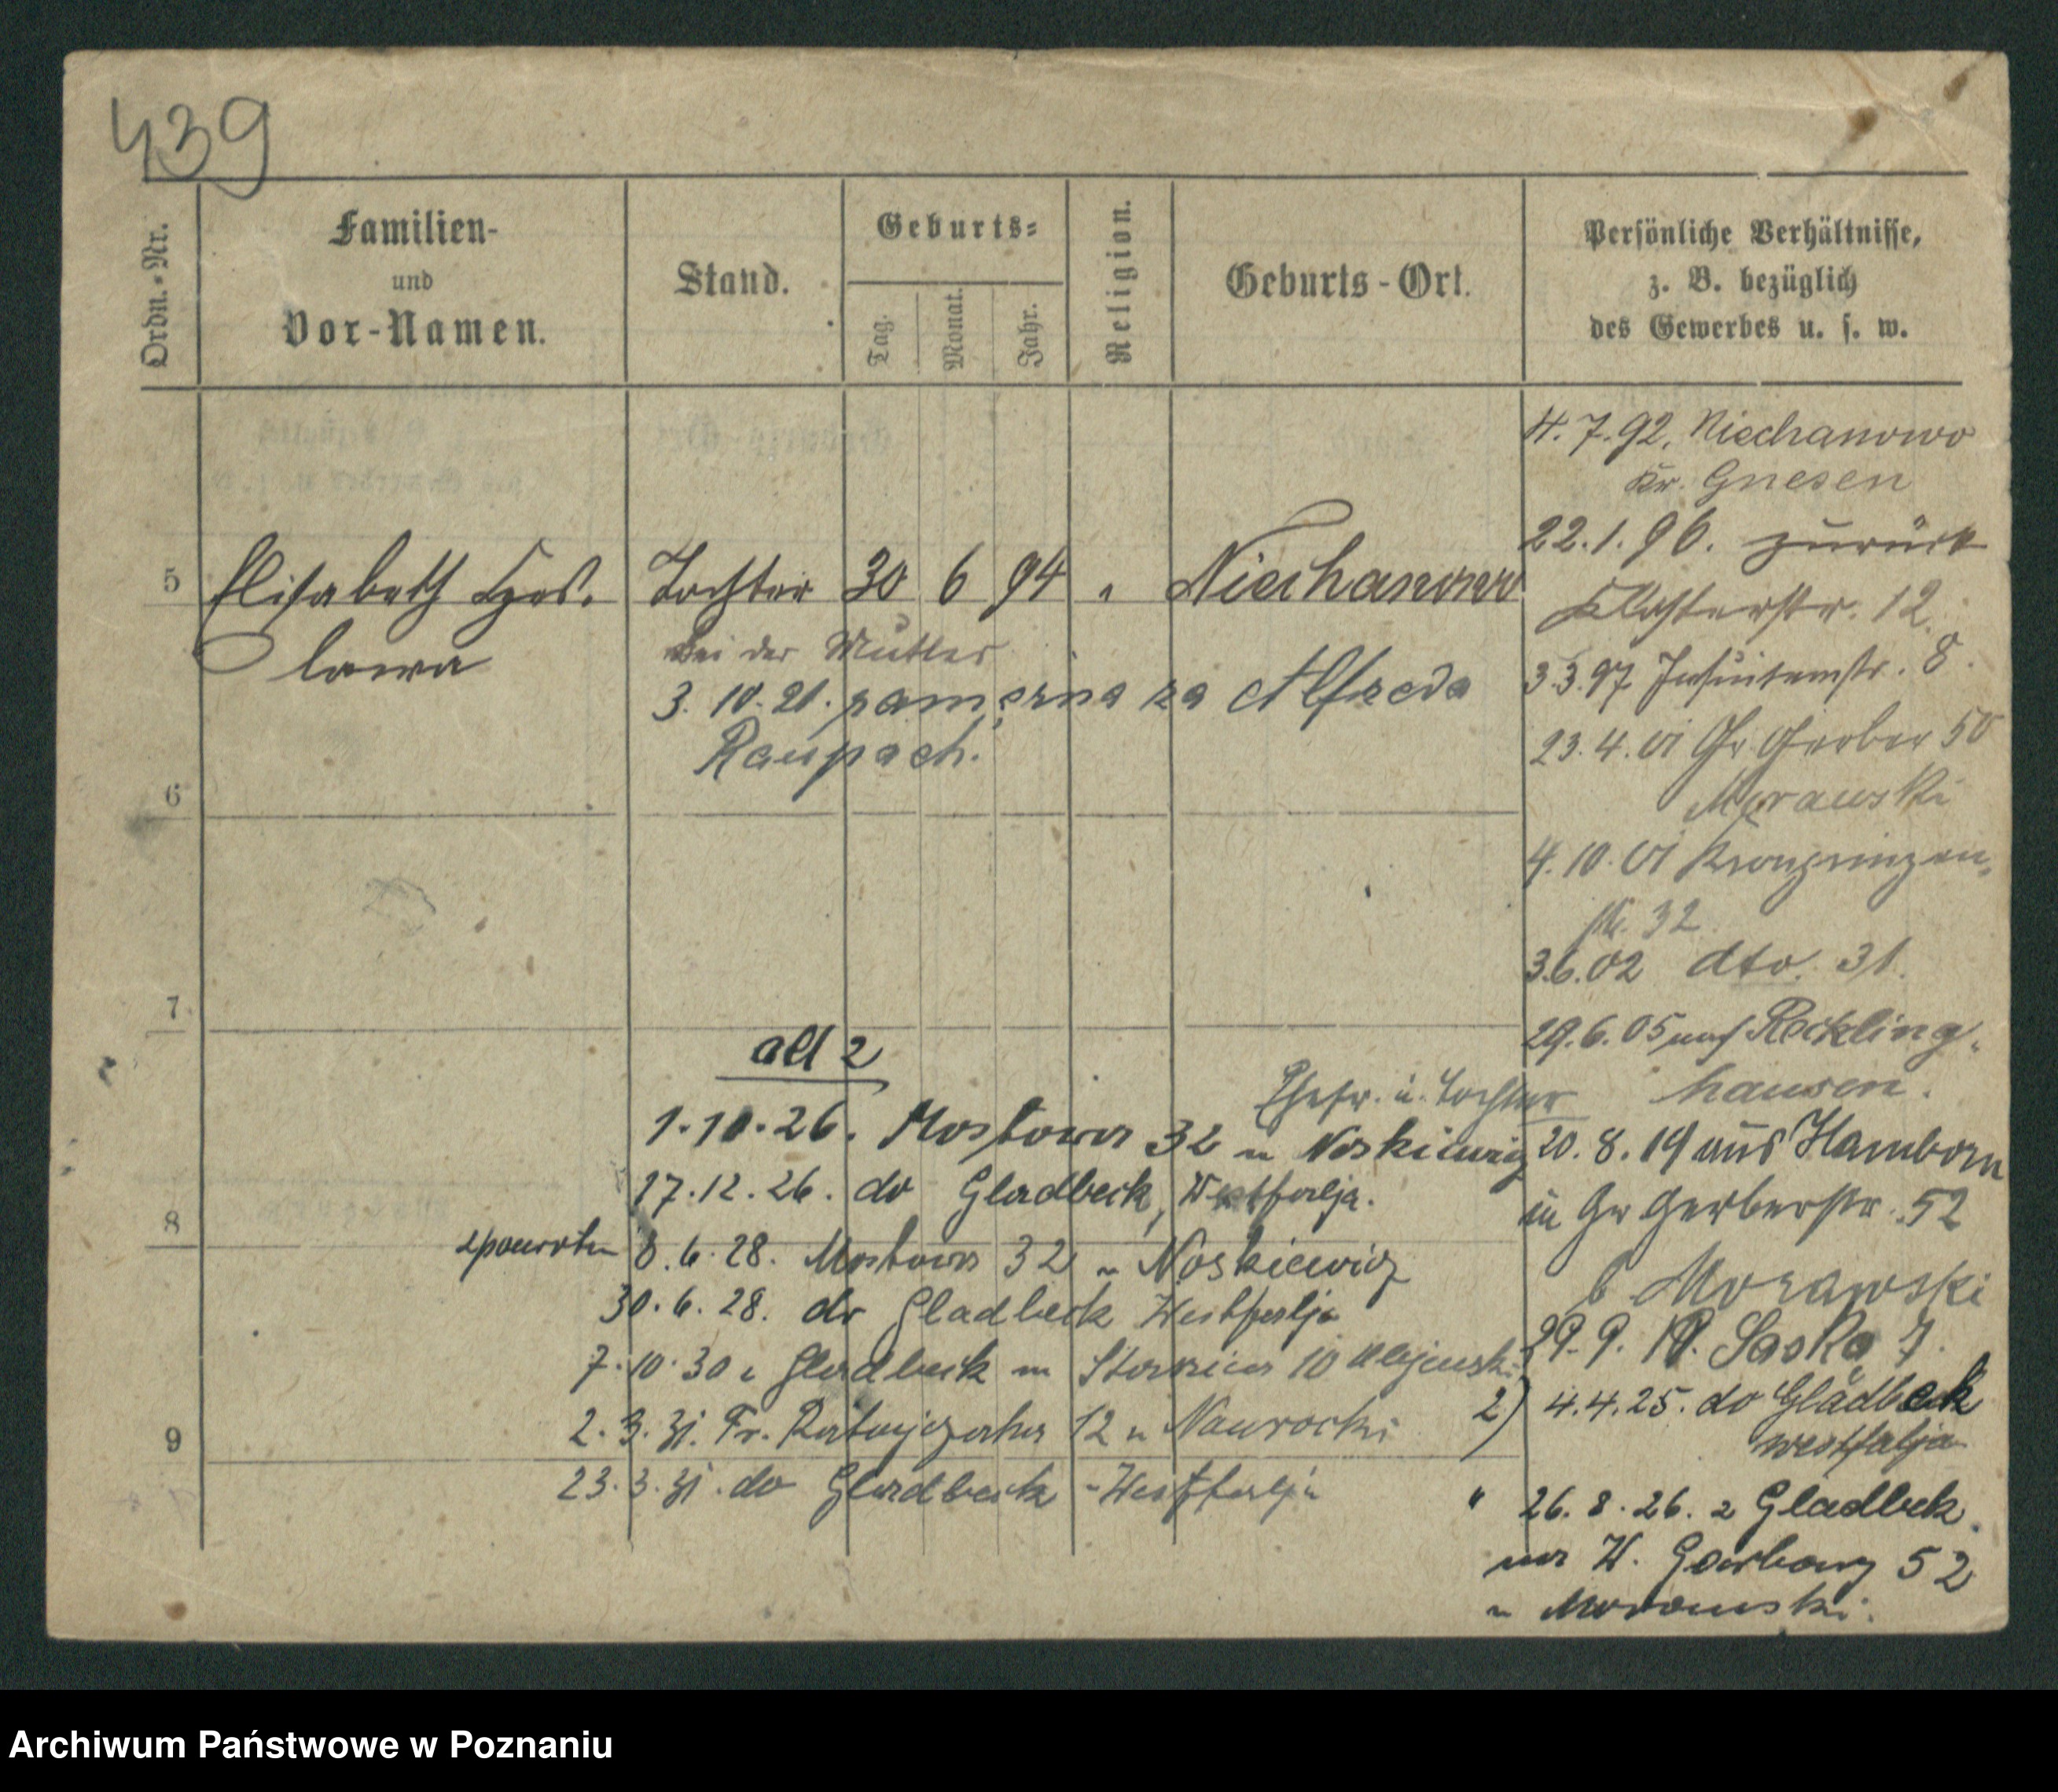 439
Ordn.-Nr.
Familien-
und
Vor-Namen.
Stand.
Geburts-
Tag.
Monat.
Jahr.
Religion.
Geburts-Ort.
Persönliche Verhältnisse,
z. B. bezüglich
des Gewerbes u. s. w.
4.7.92. Niechanowo
Kr. Gnesen
22.1.96. zurück
Klosterstr. 12.
3.3.97 Jesuitenstr. 8.
23.4.01 Gr Gerber 50
Morawski
4.10.01 Kronprinzen-
str. 32
3.6.02 dto. 31.
29.6.05 nach Reckling-
hausen.
Ehefr. u. Tochter
20.8.19 aus Hamborn
in Gr Gerberstr. 52
b Morawski
29.9. Saska 7.
2) 4.4.25. do Gladbeck
Westfalja
" 26.8.26. z Gladbek
na W. Garbary 52
u Morawski.
5 Elisabeth Tochter 30 6 94 " Niechanowo
lawa
bei der Mutter
3.10.21. zamężna za Alfreda
Raupach.
6
7
ad 2
1.10.26. Mostowa 32 u Noskiewicz
17.12.26. do Gladbeck, Westfalja.
8
zpowrotem 8.6.28. Mostowa 32 u Noskiewicz
30.6.28. do Gladbeck Westfalja
7.10.30 z Gladbeck na 10
9
2.3.31. Fr. Ratajczaka 12 u Nawrocki
23.3.31. do Gladbeck - Westfalja
Archiwum Państwowe w Poznaniu